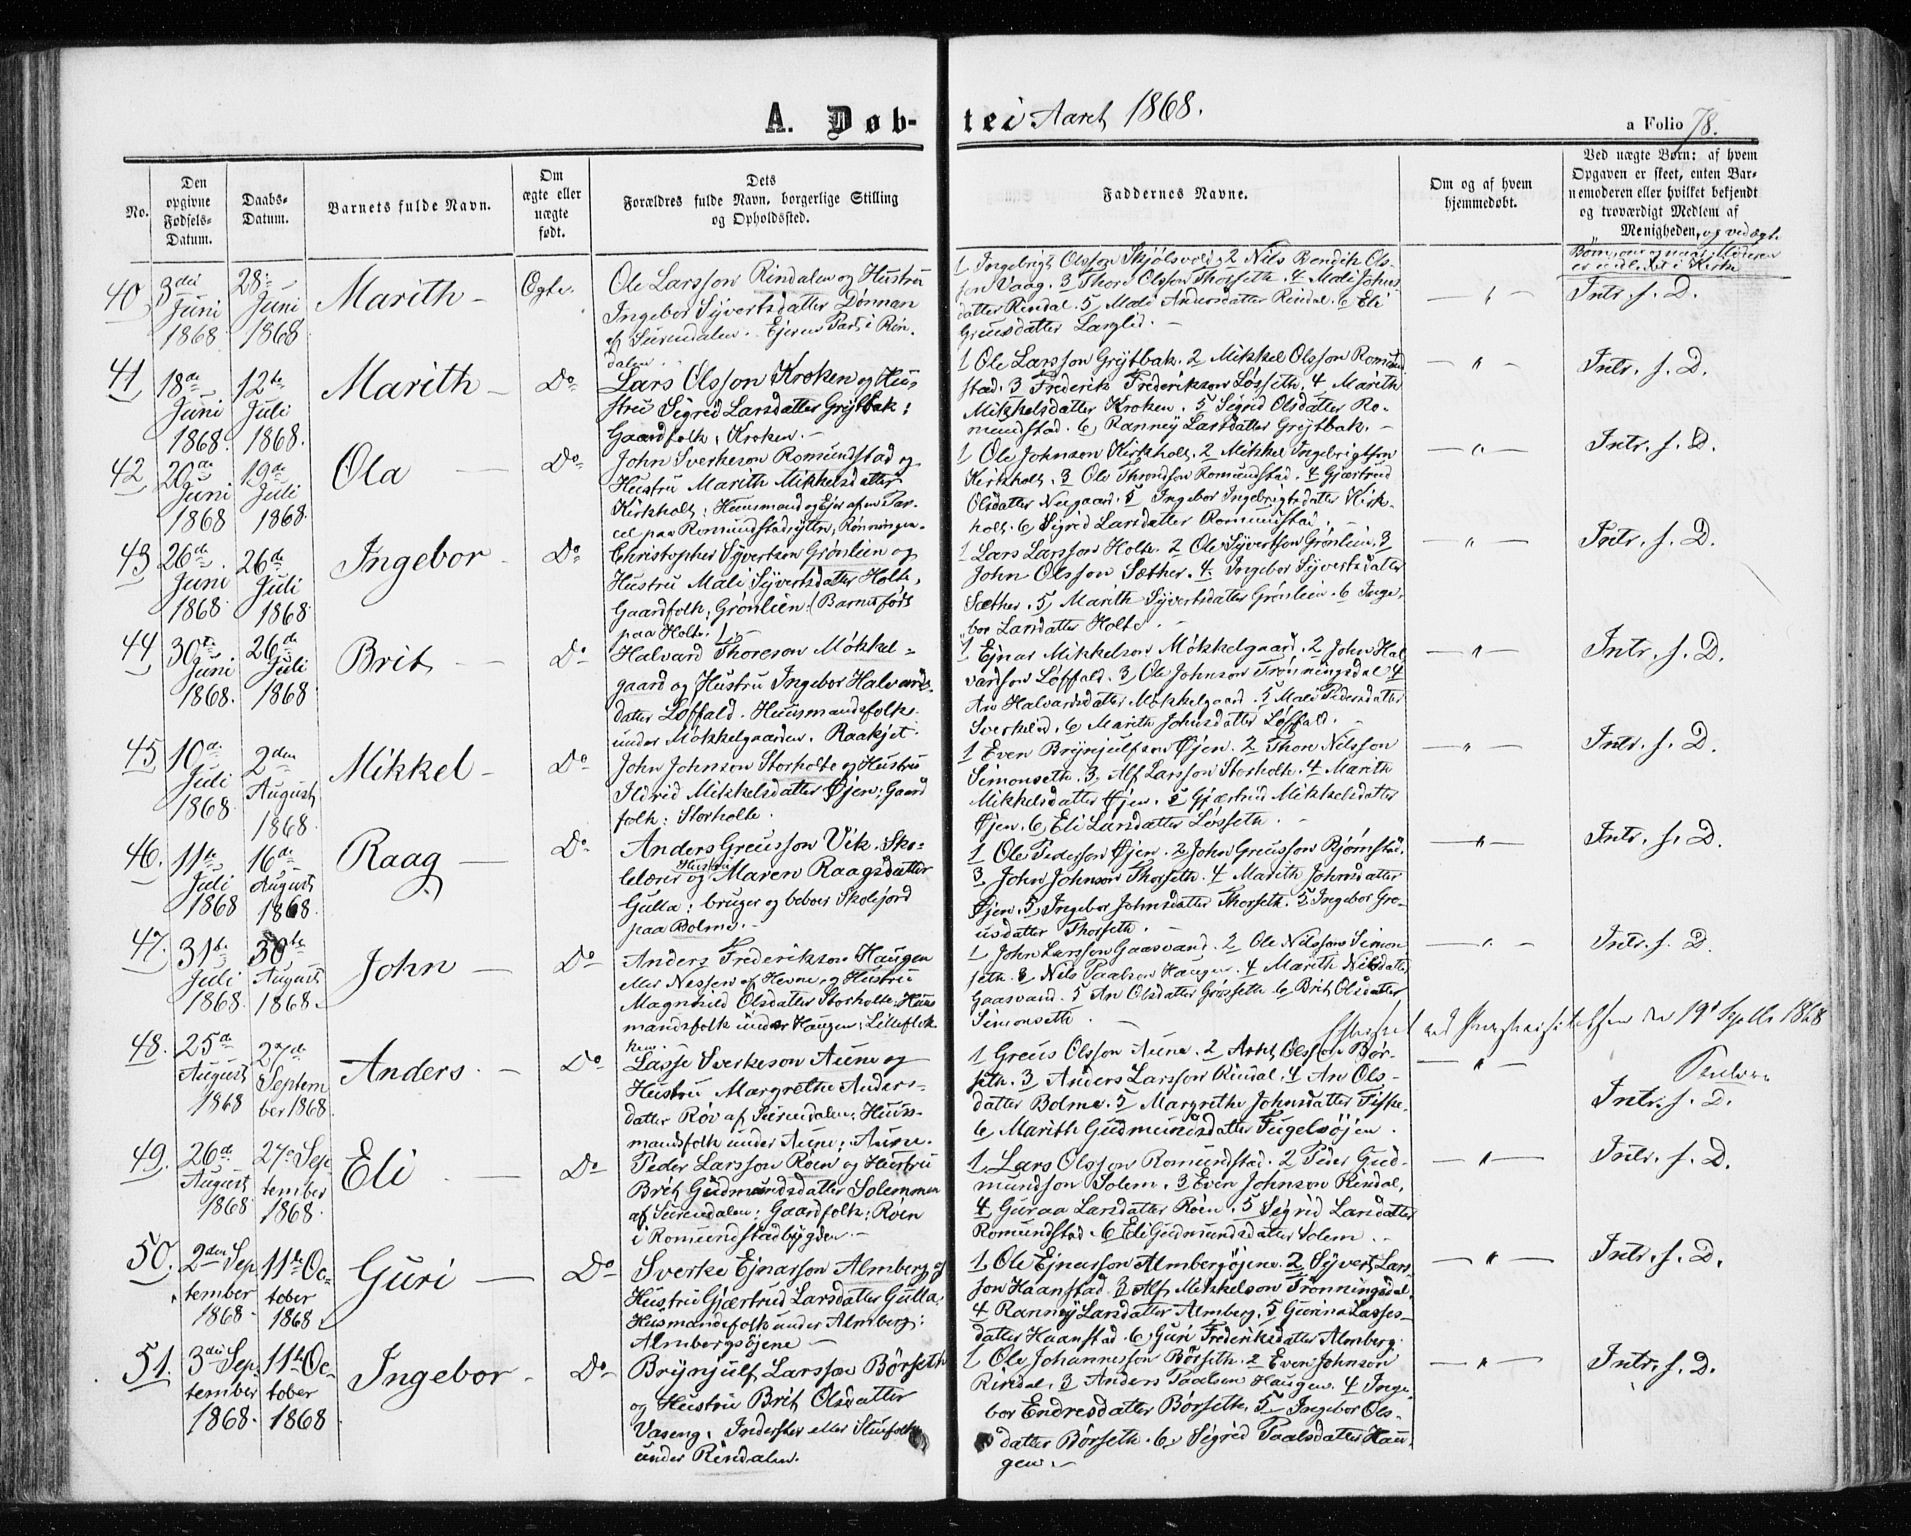 A. Døb-
te i Aaret 1868.
a Folio 78.
No.
Den opgivne Fødsels-Datum.
Daabs-Datum.
Barnets fulde Navn.
Om ægte eller uægte født.
Dets Forældres fulde Navn, borgerlige Stilling og Opholdssted.
Faddernes Navne.
Om og af hvem hjemmedøbt.
Ved uægte Børn: af hvem
Opgaven er skeet, enten Bar-
nemoderen eller hvilket bekjendt
og troværdigt Medlem af
Menigheden, og ved ægte
40 3die Juni 1868 28de Juni 1868 Marith — Ægte.
Ole Larsson Rindalen og Hustru
Ingebor Syvertsdatter Dønnan
af Surendalen. Ejer en Part i Rin-
dalen.
1 Ingebrigt Olsson Skjølsvold. 2 Nils Bendik Ols-
son Vaag. 3 Thore Olsson Thorseth. 4 Mali Johns
datter Rindal. 5 Mali Andersdatter Rindal. 6 Eli
Greusdatter Langlid. —
— „ — Intr. f. D.
41 18de Juni 1868. 12te Juli 1868. Marith — Do
Lars Olsson Kroken og Hu-
stru Sigrid Larsdatter Grytbak;
Gaardfolk; Kroken. —
1 Ole Larsson Grytbak. 2 Mikkel Olsson Romund
stad. 3 Frederik Frederikson Løsseth. 4 Marith
Mikkelsdatter Kroken. 5 Sigrid Olsdatter Ro-
mundstad. 6, Rannøy Larsdatter Grytbak. —
— „ — Intr. f. D.
42 20de Juni 1868 19de Juli 1868. Ola — Do
John Sverkeson Romundstad og
Hustru Marith Mikkelsdatter
Kirkholt; Huusmand og Ejer af en Par-
cel paa Romundstadsyttre, Rønningen.
1 Ole Johnson Kirkholt. 2 Mikkel Ingebrigtson
Kirkholt. 3 Ole Throndson Romundstad. 4 Gjærtrud
Olsdatter Nergaard. 5 Ingebor Ingebrigtsdatter Kirk-
holt. 6 Sigrid Larsdatter Romundstad.
— „ — Intr. f. D.
43 26de Juni 1868 26de Juli 1868 Ingebor — Do
Christopher Syvertson Grønlien og
Hustru Mali Syvertsdatter Holte,
Gaardfolk; Grønlien; (Barnet født
paa Holte.)
1 Lars Larsson Holte. 2 Ole Syvertson Grønlien. 3
John Olsson Sæther. 4 Ingebor Syvertsdatter
Sæther. 5, Marith Syvertsdatter Grønlien. 6 Inge-
bor Larsdatter Holte.
— „ — Intr. f. D.
44 30te Juni 1868. 26de Juli 1868 Brit — Do
Halvard Thoreson Møkkel-
gaard og Hustru Ingebor Halvards-
datter Løffald. Huusmandsfolk
under Møkkelgaarden. Raakjet.
1 Ejnar Mikkelson Møkkelgaard. 2 John Hal
vardson Løffald. 3 Ole Johnson Trønningsdal 4
An Halvardsdatter Møkkelgaard. 5 Mali Pedersdatter
Sverkelid. 6 Marith Johnsdatter Løffald. —
— „ — Intr. f. D.
45 10de Juli 1868 2den August 1868 Mikkel — Do
John Johnson Storholte og Hustru
Ildrid Mikkelsdatter Øjen; Gaard
folk: Storholte.
1 Even Brynjulfson Øjen. 2 Thore Nilsson
Simonseth. 3 Alf Larsson Storholte. 4 Marith
Mikkelsdatter Øjen. 5 Gjærtrud Mikkelsdatter
Øjen. 6, Eli Larsdatter Løsseth. —
— „ — Intr. f. D.
46. 11te Juli 1868 16de August 1868. Raag — Do
Anders Greusson Vik. Sko-
lelærer og Hustru Maren Raagsdatter
Gulla: bruger og beboer Skolejord
paa Bolme. —
1 Ole Pederson Øjen. 2 John Greusson Bjørnstu.
3 John Johnson Thorseth. 4 Marith Johnsdatter
Øjen. 5, Ingebor Johnsdatter Thorseth. 5 Ingebor Gre-
usdatter Thorseth.
— „ — Intr. f. D.
47. 31te Juli 1868. 30te August 1868. John — Do
Anders Frederikson Haugen
eller Nessen af Hevne og Hustru
Magnhild Olsdatter Storholte; Huus
mandsfolk under Haugen; Lilleflek
ken.
1 John Larsson Gaasvand. 2 Ole Nilsson Simon
seth. 3 Nils Paalson Haugen. 4 Marith Nilsdatter
Gaasvand. 5 An Olsdatter Grøseth. 6 Brit Olsdatter
Simonseth. —
— „ — Intr. f. D.
19d 1868
48. 25de August 1868 27de September 1868. Anders. — Do
Lasse Sverkeson Aune og
Hustru Margrethe Anders-
datter Rov af Surendalen; Huus-
mandsfolk under Aune; Aune.
1 Greus Olsson Aune. 2 Arnt Olsson Bør-
seth. 3 Anders Larsson Rindal. 4 An Ols-
datter Bolme. 5 Margrethe Johnsdatter Fiske.
6 Marith Gudmundsdatter Fugelsøjen.
— „ — Intr. f. D.
49. 26de August 1868 27de September 1868. Eli — Do
Peder Larsson Røen og Hustru
Brit Gudmundsdatter Solemmen
af Surendalen; Gaardfolk; Røen
i Romundstadbygden. —
1 Lars Olsson Romundstad. 2 Peder Gud-
mundson Solem. 3 Even Johnson Rindal,
4 Guraa Larsdatter Røen. 5 Sigrid Larsdatter
Romundstad. 6 Eli Gudmundsdatter Solem. —
— „ — Intr. f. D.
50. 2den September 1868. 11te October 1868. Guri — Do
Sverke Ejnarson Almberg og
Hustru Gjærtrud Larsdatter Gulla.
Husmandsfolk under Almberg;
Almbergsøjene —
1 Ole Ejnarson Almbergøjene. 2 Syvert Lars-
son Haanstad. 3 Alf Mikkelson Trønningsdal.
4 Rannøy Larsdatter Almberg. 5 Gurina Lasses-
datter Haanstad. 6, Guri Frederiksdatter Almberg.
— „ — Intr. f. D.
51. 3die September 1868. 11te October 1868 Ingebor — Do
Brynjulf Larsson Børseth
og Hustru Brit Olsdatter
Vaseng. Inderster eller Stuefolk
under Rindalen.
1 Ole Johannesson Børseth. 2 Even Johnson
Rindal. 3 Anders Paalsen Haugen. 4 Inge-
bor Endresdatter Børseth. 5, Ingebor Ols-
datter Børseth. 6, Sigrid Paalsdatter Hau-
gen. —
— „ — Intr. f. D.